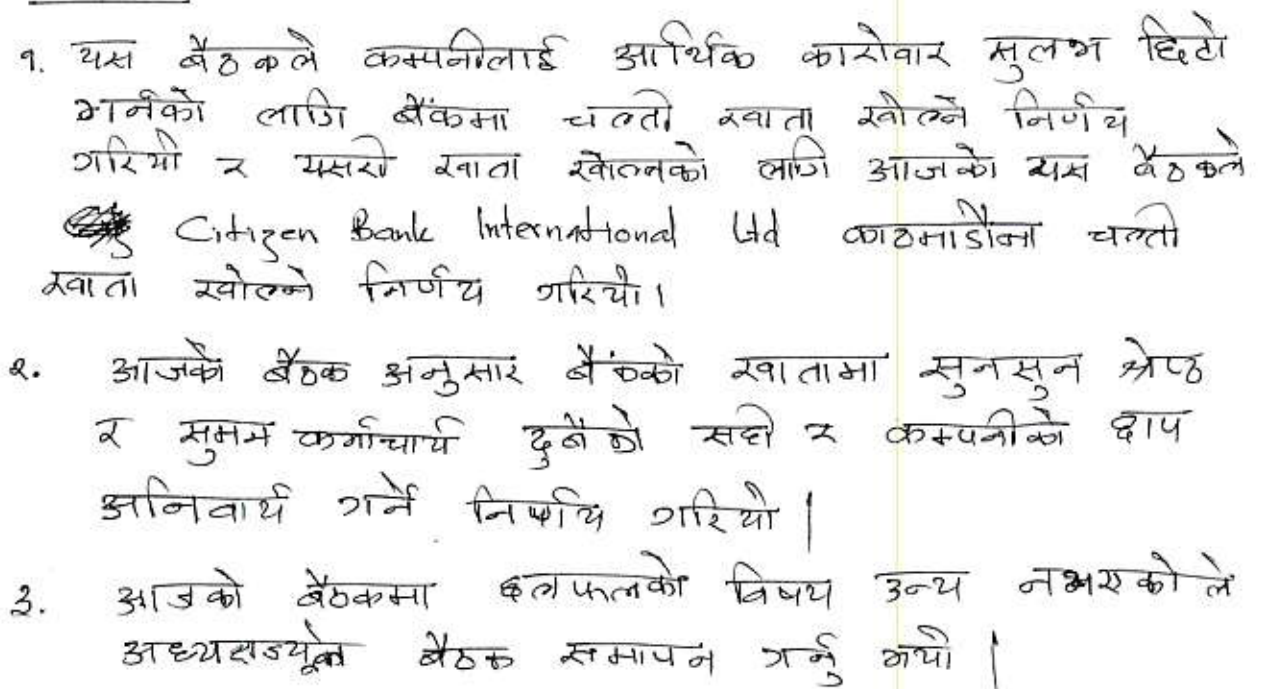 १. यस बैठकले कम्पनीलाई आर्थिक कारोवार सुलभ छिटो
गर्नको लागि बैंकमा चल्ती खाता खोल्ने निर्णय
गरियो र यसरी खाता खोल्नको लागि आजको यस बैठकले
Citizen Bank International Ltd काठमाडौंमा चल्ती
खाता खोल्ने निर्णय गरियो।
२. आजको बैठक अनुसार बैंकको खातामा सुनसुन श्रेष्ठ
र सुमन कर्माचार्य दुबैको सही र कम्पनीको छाप
अनिवार्य गर्ने निर्णय गरियो |
३. आजको बैठकमा छलफलको विषय अन्य नभएकोले
अध्यक्षज्यूले बैठक समापन गर्नु भयो |